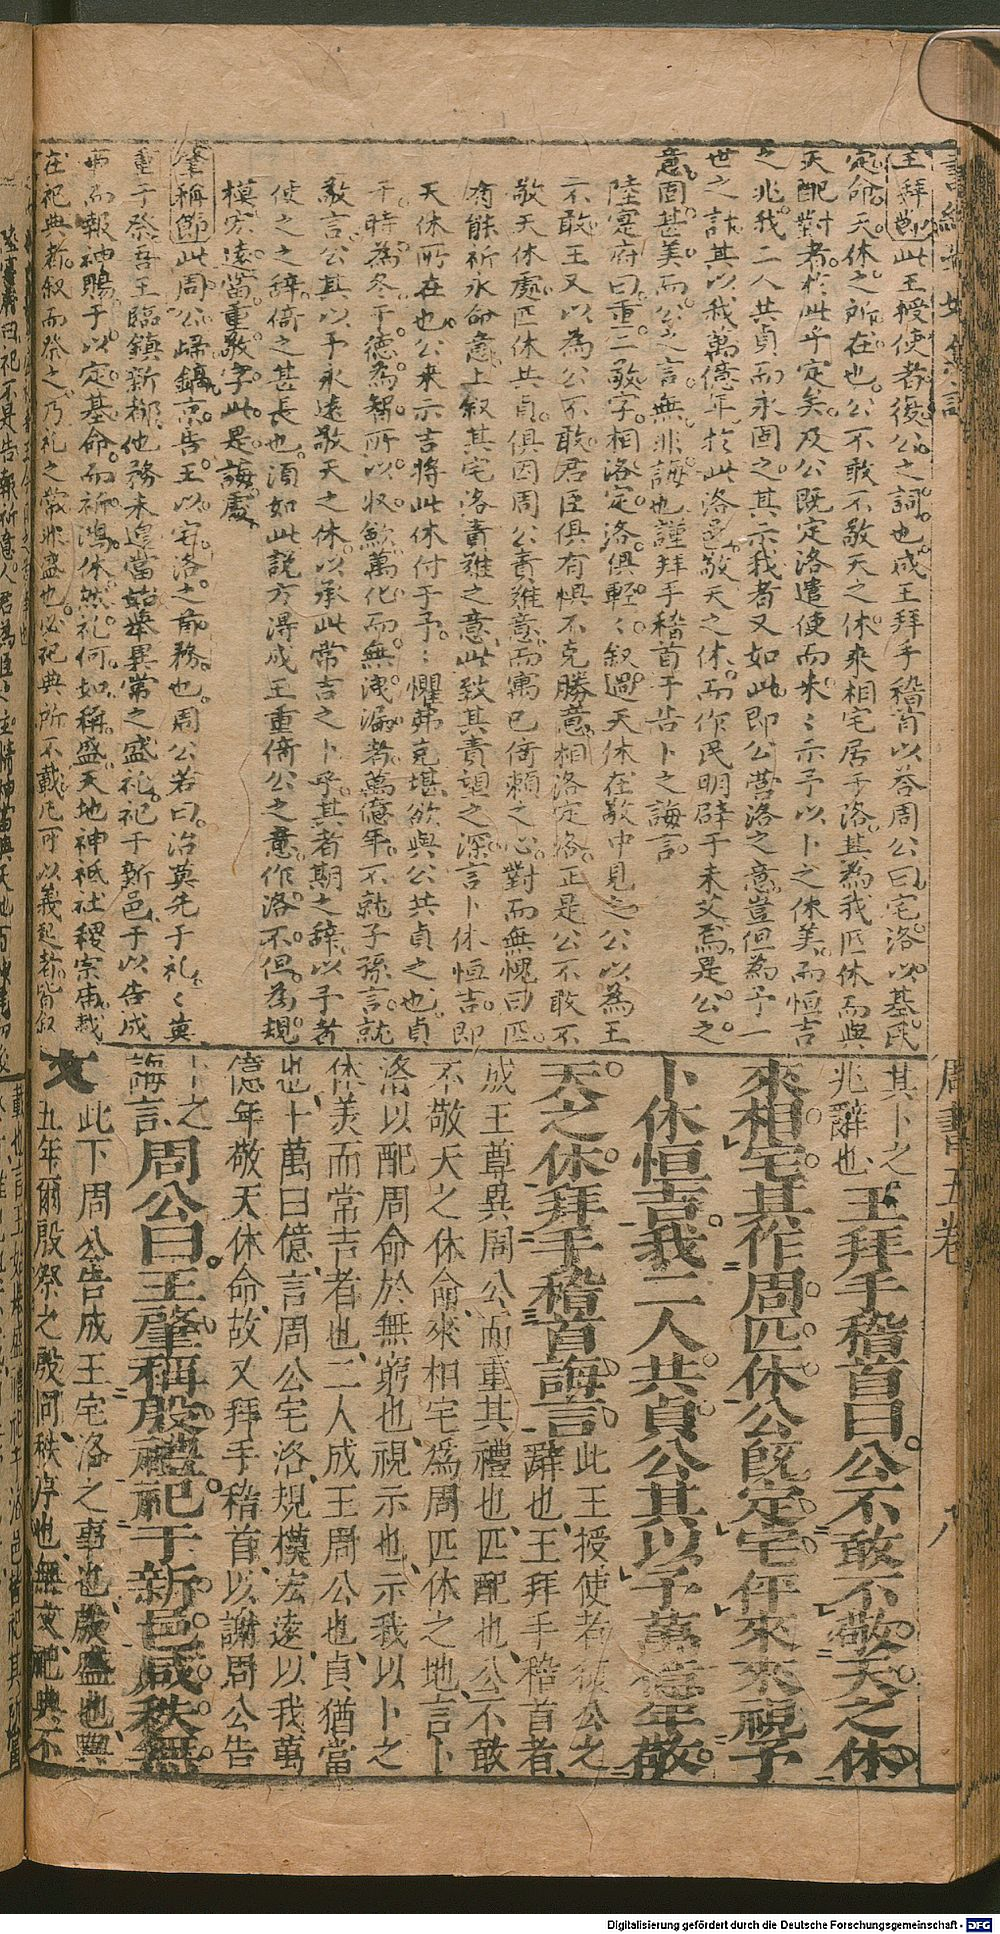 王拜節此王授使者復公之詞也成王拜手稽首以荅周公曰宅洛以基民
定命天休之所在也公不敢不敬天之休來相宅居于洛其為我匹休而與
天配對者於此乎定矣及公既定洛遣使而來〻示予以卜之休美而恒吉
之兆我二人共貞而永固之其示我者又如此即公營洛之意豈但為予一
世之計其以我萬億年於此洛邑敬天之休而作民明辟于未艾焉是公之
意固甚美而公之言無非誨也謹拜手稽首于告卜之誨言
陸寔府曰重二敬字相洛定洛俱輕〻叙過天休在敬中見之公以為王
不敢王又以為公不敢君臣俱有惧不克勝意相洛定洛正是公不敢不
敬天休處匹休共貞俱因周公責难意而寓已倚賴之心對而無愧曰匹
有能祈永命意上叙其宅洛責难之意此致其責望之深言卜休恒吉即
天休所在也公來示吉將此休付于予〻懼弗克堪欲與公共貞之也貞
于時為冬于德為智所以收歛萬化而無洩漏者萬億年不就子孫言就
敬言公其以予永遠敬天之休以承此常吉之卜乎其者期之辞以予者
使之之辞倚之甚長也須如此説方得成王重倚公之意作洛不但為規
模宏遠當重敬字此是誨處
肇稱節此周公歸鎬京告王以宅洛之前務也周公若曰治莫先于礼〻莫
重于祭吾王臨鎮新都他務未遑當始舉異常之盛祀祀于新邑于以告成
事而報神賜于以定基命而祈鴻休然礼何如稱盛天地神祗社稷宗庙載
在祀典者叙而祭之乃礼之常非盛也必祀典所不載凡可以義起者皆叙
周書五卷
八
其卜之
兆辭也王拜手稽首曰公不敢不敬天之休
來相宅其作周匹休公既定宅伻來來視予
卜休恒吉我二人共貞公其以予萬億年敬
天之休拜手稽首誨言此王授使者復公之
辭也王拜手稽首者
成王尊異周公而重其禮也匹配也公不敢
不敬天之休命來相宅為周匹休之地言卜
洛以配周命於無窮也視示也示我以卜之
休美而常吉者也二人成王周公也貞猶當
也十萬曰億言周公宅洛規模宏遠以我萬
億年敬天休命故又拜手稽首以謝周公告
卜之
誨言周公曰王肇稱殷禮祀于新邑咸秩無
文此下周公告成王宅洛之事也殷盛也與
五年爾殷祭之殷同秩序也無文祀典不
Digitalisierung gefördert durch die Deutsche Forschungsgemeinschaft - DFG